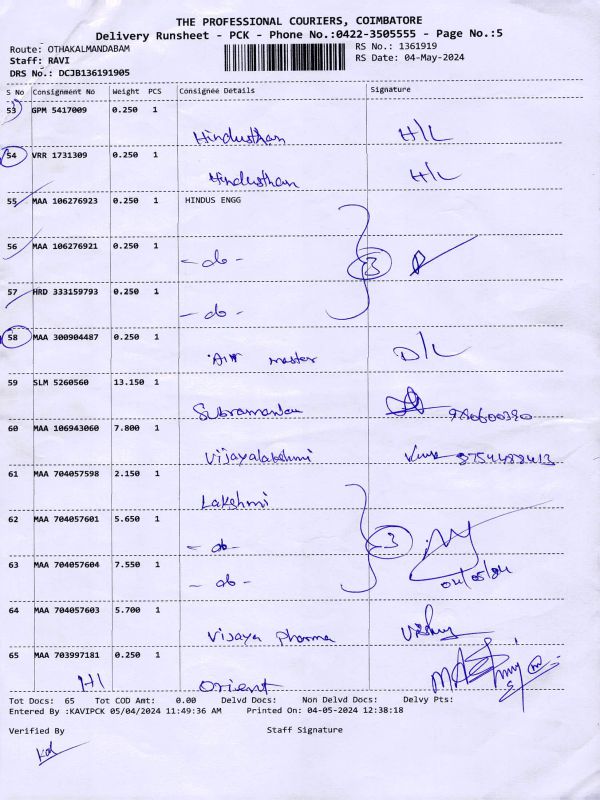 THE PROFESSIONAL COURIERS, COIMBATORE
Delivery Runsheet - PCK - Phone No.:0422-3505555 - Page No.:5
Route: OTHAKALMANDABAM
RS No.: 1361919
Staff: RAVI
RS Date: 04-May-2024
DRS No.: DCJB136191905
S No Consignment No Weight PCS Consignee Details Signature
53 GPM 5417009 0.250 1
Hindusthan H/L
54 VRR 1731309 0.250 1
Hindusthan H/L
55 MAA 106276923 0.250 1 HINDUS ENGG
56 MAA 106276921 0.250 1
- do - 3
57 HRD 333159793 0.250 1
- do -
58 MAA 300904487 0.250 1
Air master D/L
59 SLM 5260560 13.150 1
60 MAA 106943060 7.800 1
Vijayalakshmi 9754488413
61 MAA 704057598 2.150 1
Lakshmi
62 MAA 704057601 5.650 1
- do - 3
63 MAA 704057604 7.550 1
- do - 04/05/24
64 MAA 704057603 5.700 1
Vijaya Pharma
65 MAA 703997181 0.250 1
H/L Orient
Tot Docs: 65 Tot COD Amt: 0.00 Delvd Docs: Non Delvd Docs: Delvy Pts:
Entered By :KAVIPCK 05/04/2024 11:49:36 AM Printed On: 04-05-2024 12:38:18
Verified By Staff Signature